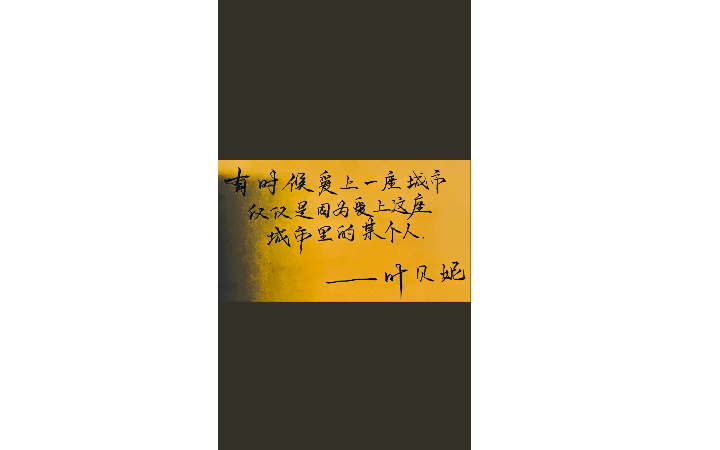 有时候爱上一座城市
仅仅是因为爱上这座
城市里的某个人.
——叶贝妮